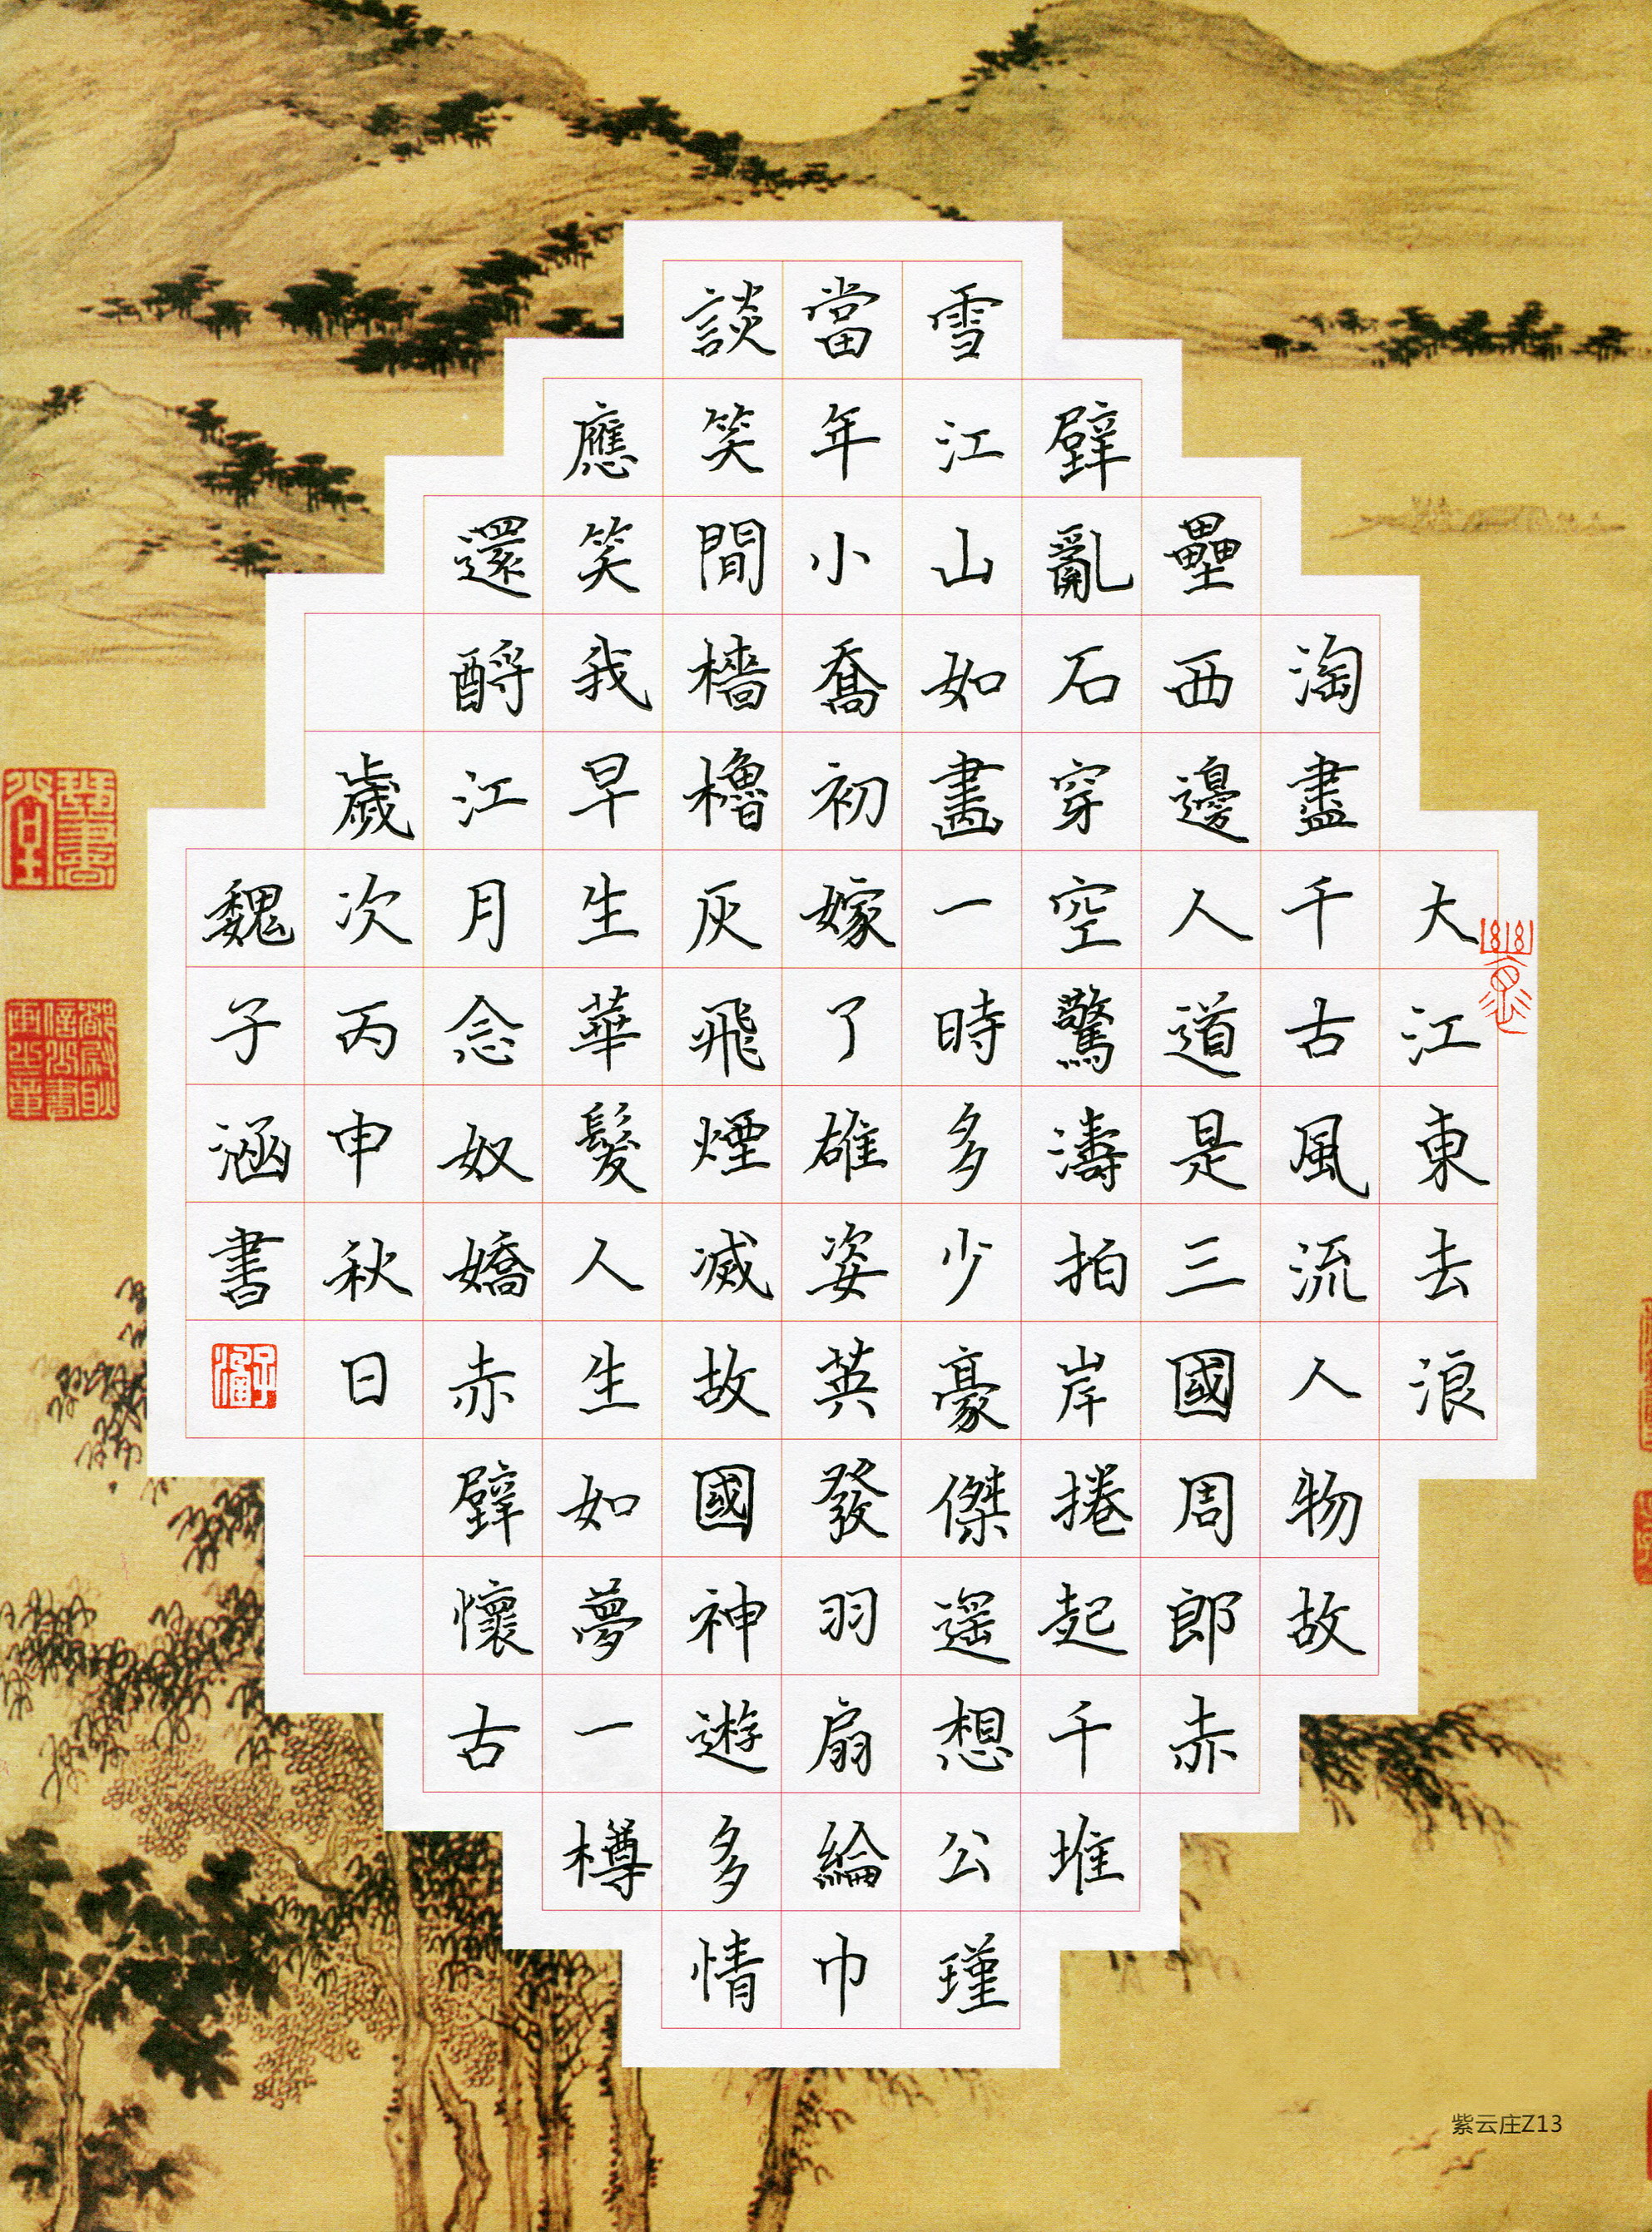 大江東去浪
淘盡千古風流人物故
壘西邊人道是三國周郎赤
壁亂石穿空驚濤拍岸捲起千堆
雪江山如畫一時多少豪傑遥想公瑾
當年小喬初嫁了雄姿英發羽扇綸巾
談笑間檣櫓灰飛煙滅故國神遊多情
應笑我早生華髮人生如夢一樽
還酹江月念奴嬌赤壁懷古
歲次丙申秋日
魏子涵書
子涵
琴書堂
都尉耿信公書畫之章
紫云庄Z13